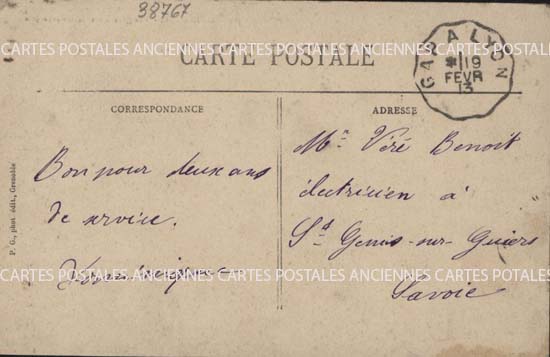 38767
CARTES POSTALES ANCIENNES CARTES POSTALES ANCIENNES CARTES POSTALES
CARTE POSTALE
GAP A LYON
* 19
FEVR
13
CORRESPONDANCE
ADRESSE
Bon pour deux ans
de service.
Dominique
Mr Véré Benoit
électricien à
St Genis-sur-Guiers
Savoie
P. G., phot édit., Grenoble
CARTES POSTALES ANCIENNES CARTES POSTALES ANCIENNES CARTES POSTALES